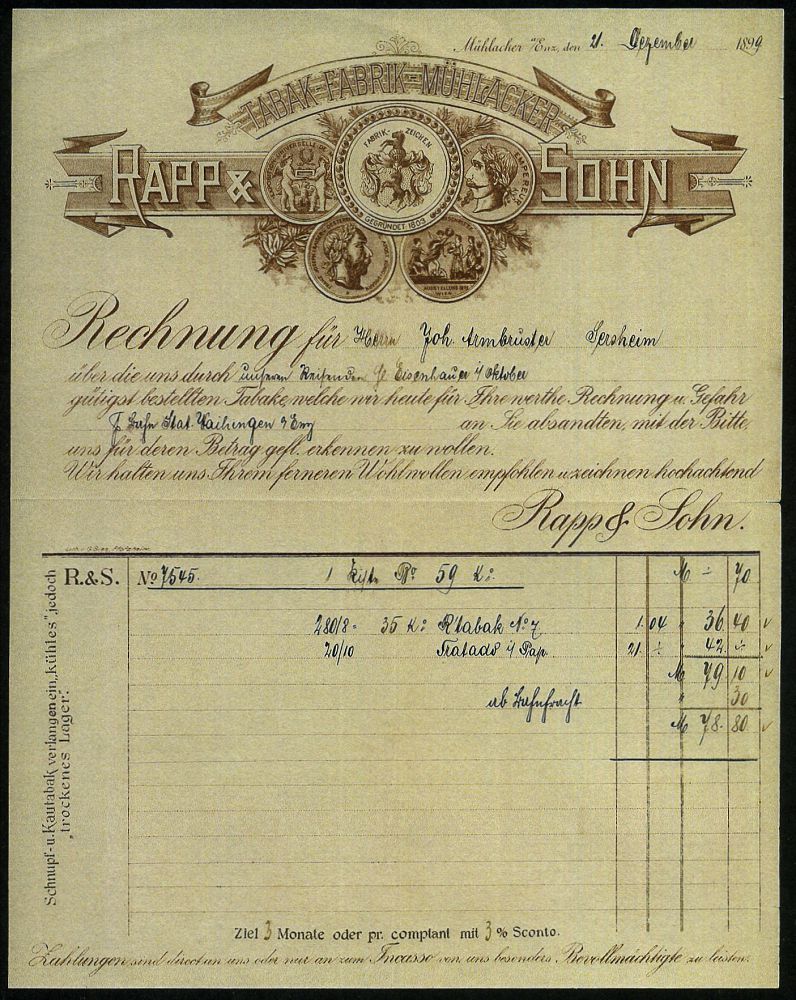 Mühlacker a/Enz, den 21. Dezember 1899
TABAK-FABRIK-MÜHLACKER
RAPP & SOHN
FABRIK-ZEICHEN
GEGRÜNDET 1809
Rechnung für Herrn Joh. Armbruster Sersheim
über die uns durch unseren Reisenden H. Eisenhauer i/ Oktober
gütigst bestellten Tabake, welche wir heute für Ihre werthe Rechnung u. Gefahr
p. Bahn Stat. Vaihingen a/Enz an Sie absandten, mit der Bitte,
uns für deren Betrag gefl. erkennen zu wollen.
Wir halten uns Ihrem ferneren Wohlwollen empfohlen u. zeichnen hochachtend
Rapp & Sohn.
R.&S. No 7545. 1 Kiste Bo 59 Ko. M ÷ 70
280/8 35 Ko R'tabak No 7 1.04 " 36.40
20/10 21. ÷ " 42. ÷
M 79.10
ab Bahnfracht " 30
M 78.80
Schnupf- u. Kautabak verlangen ein „kühles", jedoch
„trockenes Lager".
Ziel 3 Monate oder pr. comptant mit 3 % Sconto.
Zahlungen sind direct an uns oder nur an zum Incasso von uns besonders Bevollmächtigte zu leisten.